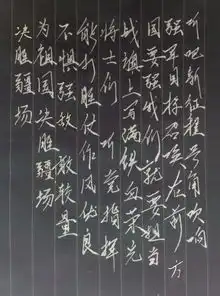 听吧新征程号角吹响
强军目标召唤在前方
国要强我们就要担当
战旗上写满铁血荣光
将士们听党指挥
能打胜仗作风优良
不惧强敌敢较量
为祖国决胜疆场
决胜疆场